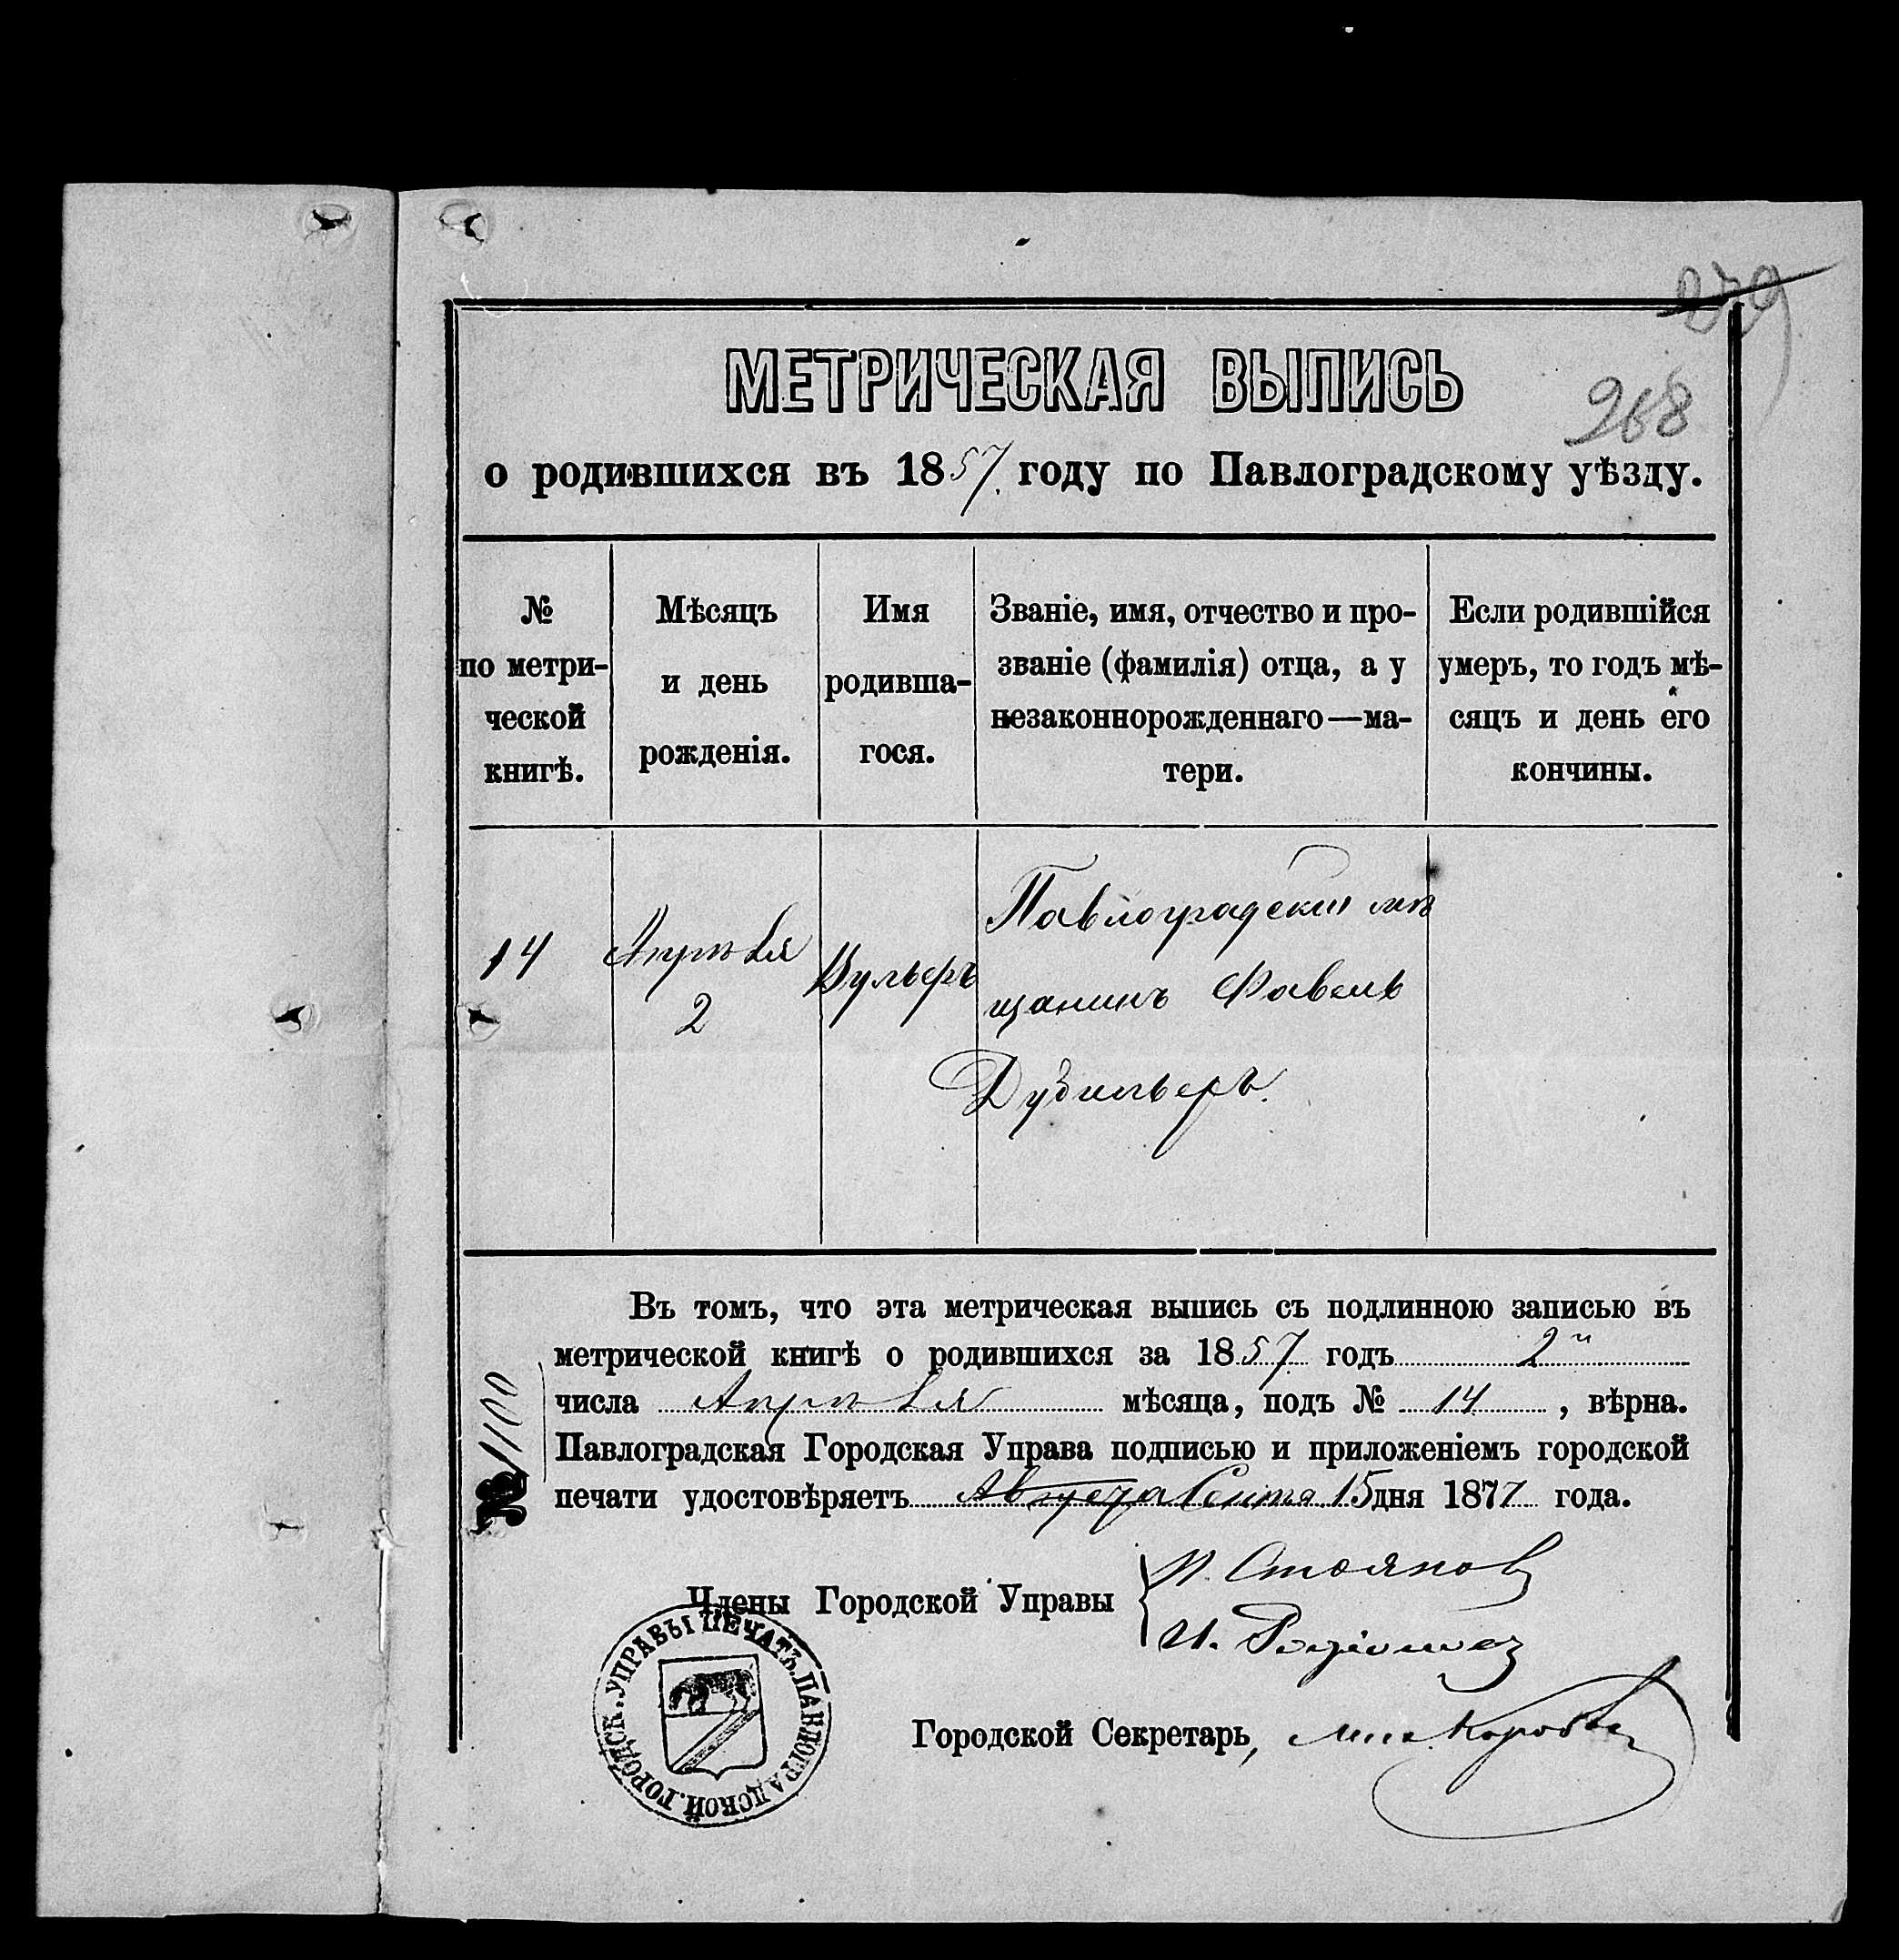 279
268
МЕТРИЧЕСКАЯ ВЫПИСЬ
о родившихся въ 1857 году по Павлоградскому уѣзду.
№
по метри-
ческой
книгѣ.
Мѣсяцъ
и день
рожденія.
Имя
родивша-
гося.
Званіе, имя, отчество и про-
званіе (фамилія) отца, а у
незаконнорожденнаго—ма-
тери.
Если родившійся
умеръ, то годъ мѣ-
сяцъ и день его
кончины.
14
Апрѣля
2
Вульфъ
Павлоградскій мѣ
щанинъ Фавель
Дубильеръ.
Въ томъ, что эта метрическая выпись съ подлинною записью въ
метрической книгѣ о родившихся за 1857 годъ 2й
числа Апрѣля мѣсяца, подъ № 14, вѣрна.
Павлоградская Городская Управа подписью и приложеніемъ городской
печати удостовѣряетъ Августа Сентя 15 дня 1877 года.
№ 1100
Члены Городской Управы
Стоянов
И.
Городской Секретарь,
ПЕЧАТЬ ПАВЛОГРАДСКОЙ ГОРОДСК. УПРАВЫ